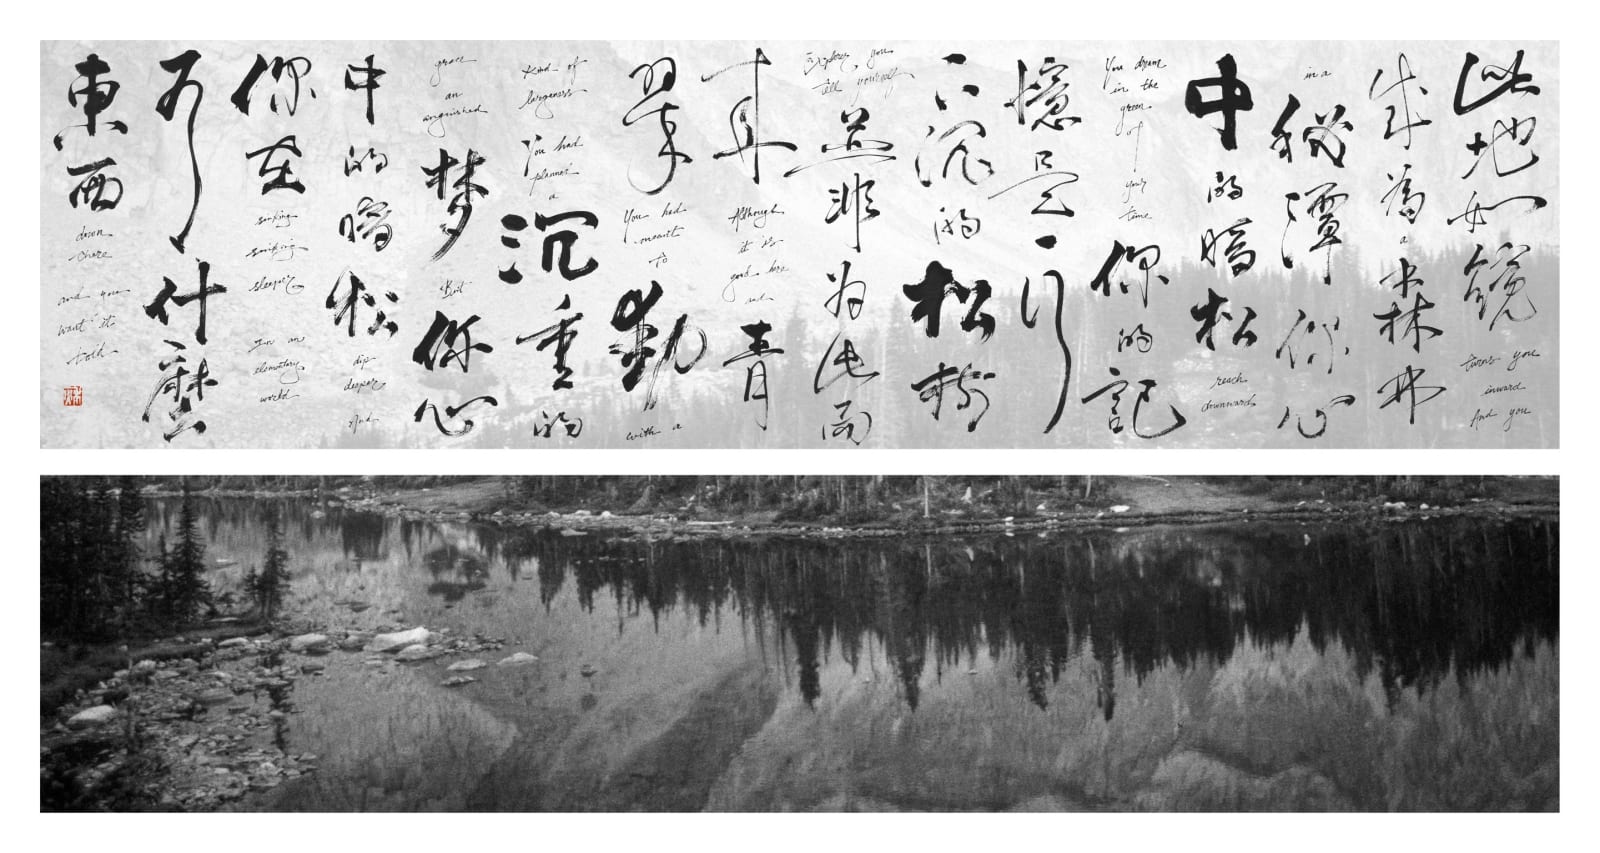 此地如鏡
turns you
inward
And you
成為
a
森林
in a
秘潭你心
中的暗松
reach
downwards
You dream
in the
green
of
your
time
你的記
憶是一行
下沉的松樹
Explore, you
tell yourself
並非為此而
來
Although
it is
good here
and
青
翠
You had
meant
to
動
with a
kind of
largeness
You had
planned
a
沉重的
grace
an
anguished
夢
But
你心
中的暗松
dip
deeper
And
你在
sinking
sinking
sleeper
In an
elementary
world
有什麼
東西
down
there
and you
want it
told